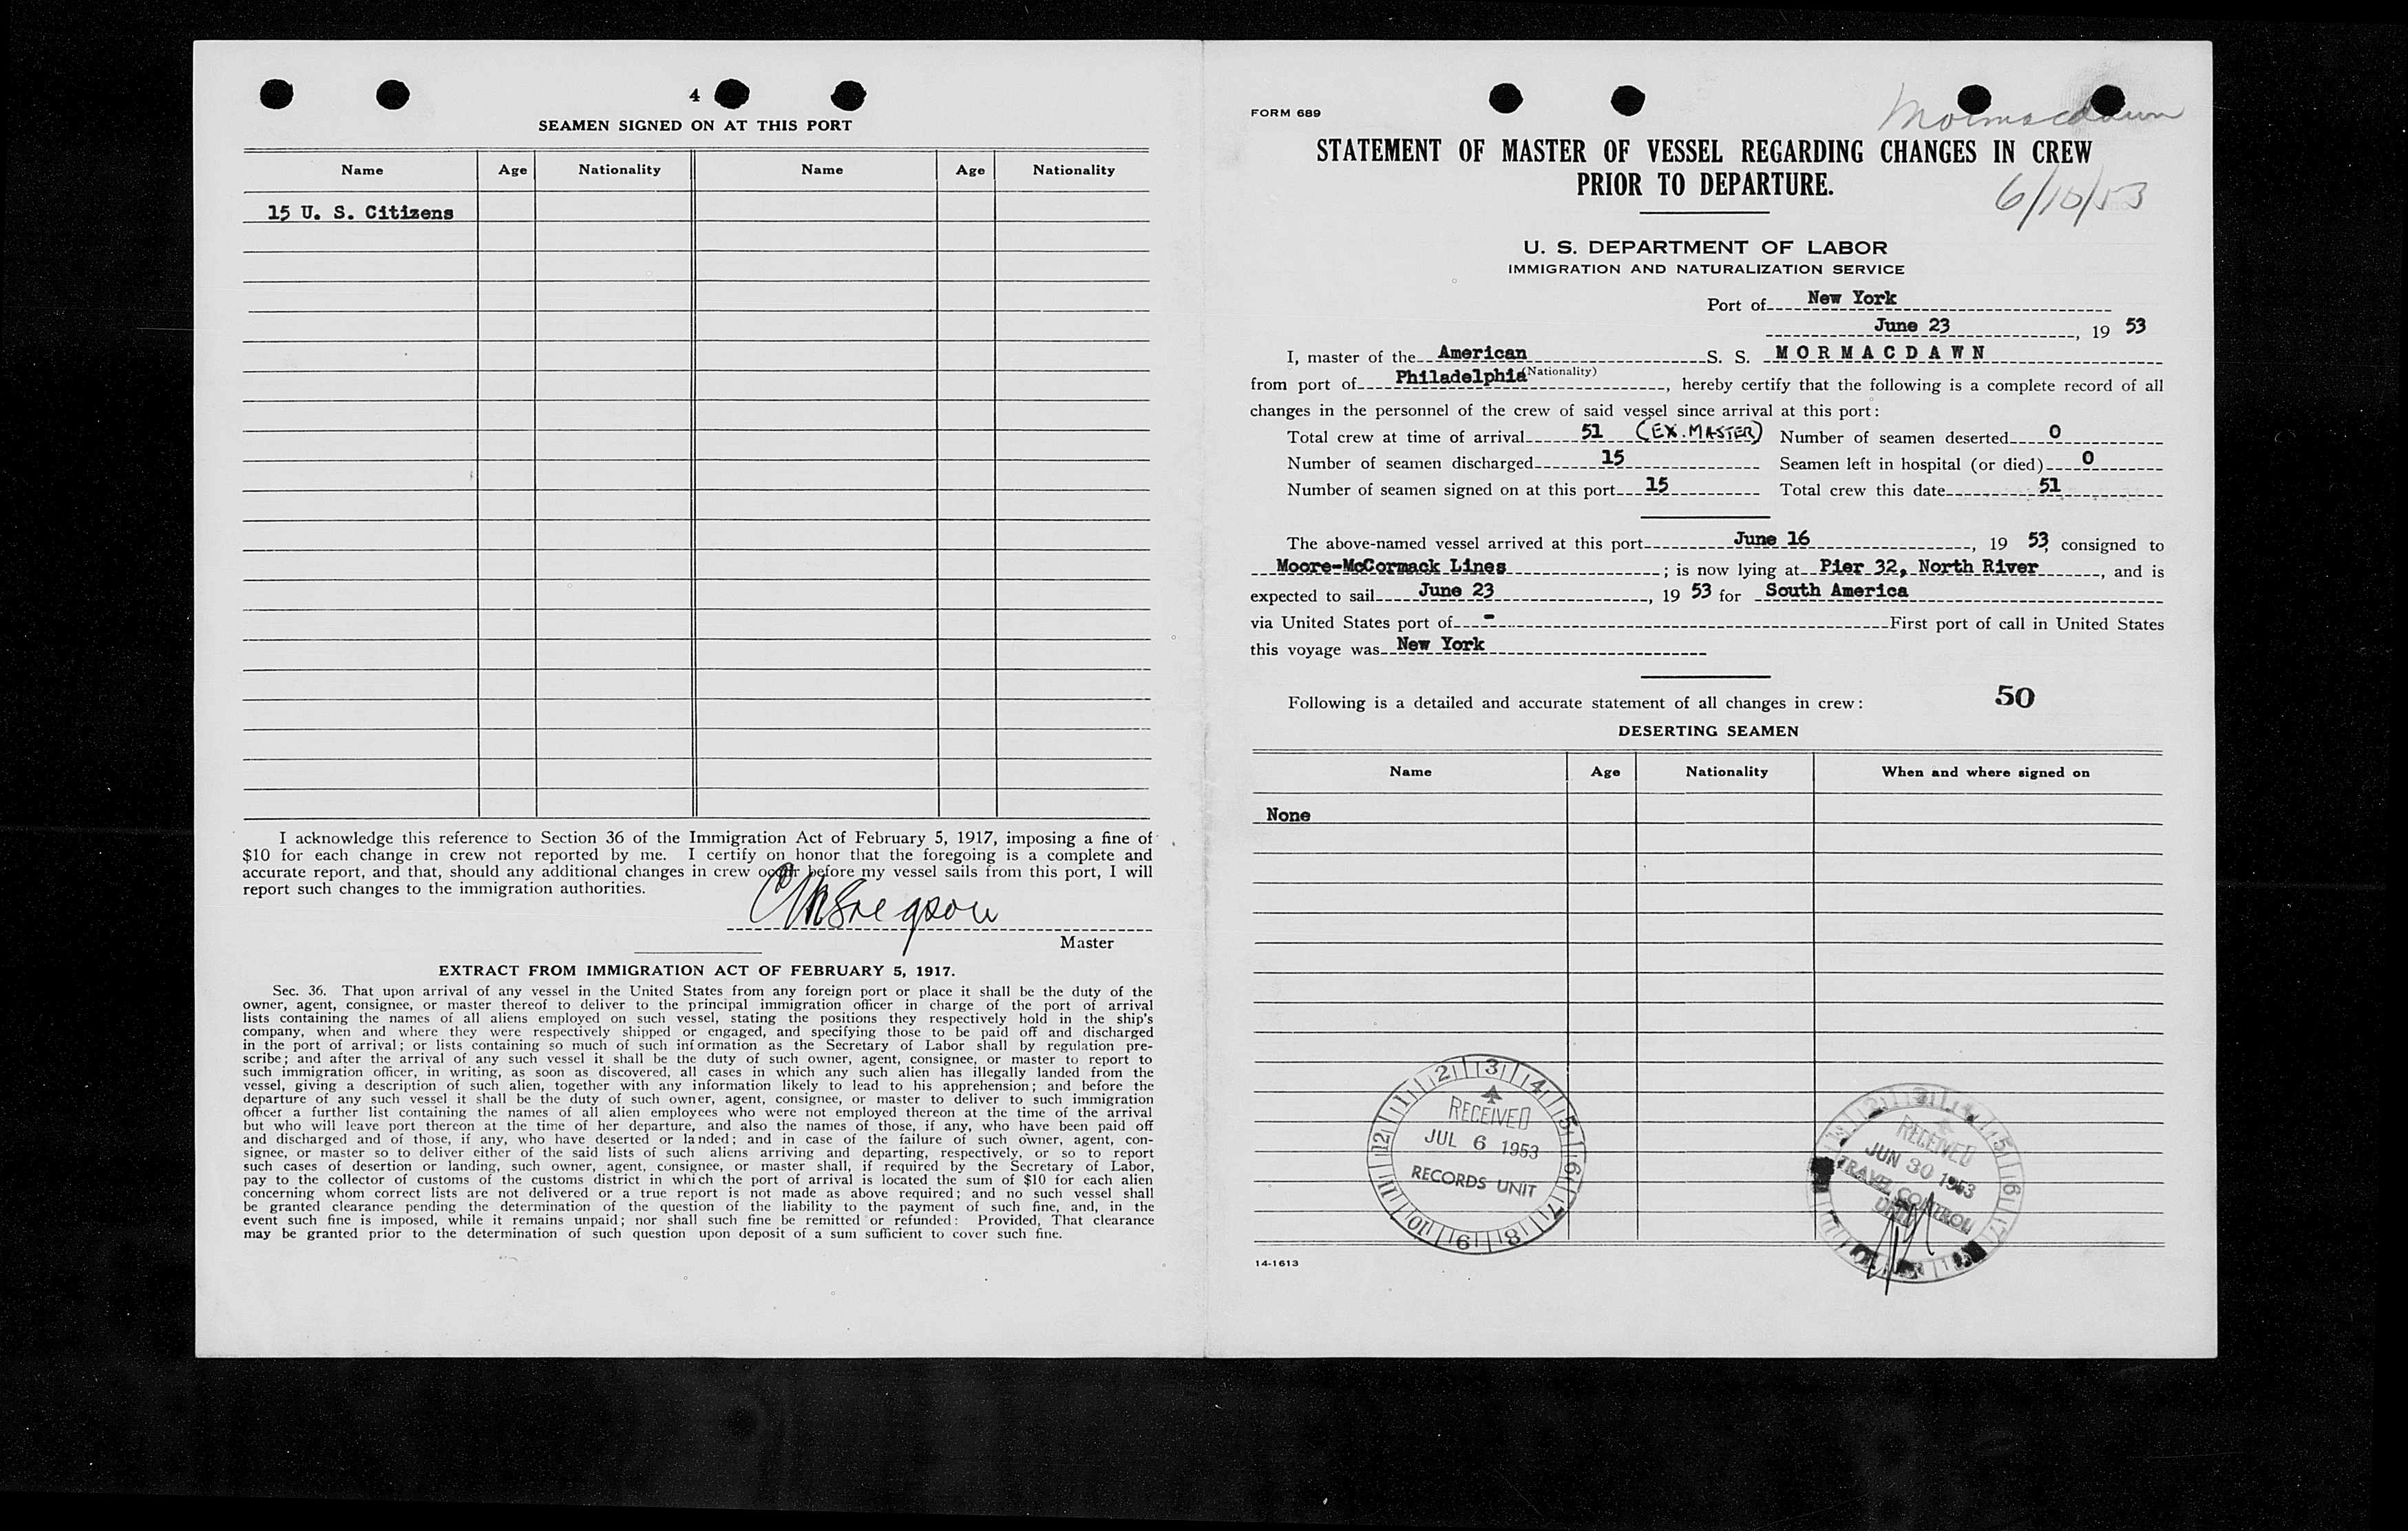 4
SEAMEN SIGNED ON AT THIS PORT
Name Age Nationality Name Age Nationality
15 U. S. Citizens
I acknowledge this reference to Section 36 of the Immigration Act of February 5, 1917, imposing a fine of
$10 for each change in crew not reported by me. I certify on honor that the foregoing is a complete and
accurate report, and that, should any additional changes in crew occur before my vessel sails from this port, I will
report such changes to the immigration authorities.
Master
EXTRACT FROM IMMIGRATION ACT OF FEBRUARY 5, 1917.
Sec. 36. That upon arrival of any vessel in the United States from any foreign port or place it shall be the duty of the
owner, agent, consignee, or master thereof to deliver to the principal immigration officer in charge of the port of arrival
lists containing the names of all aliens employed on such vessel, stating the positions they respectively hold in the ship's
company, when and where they were respectively shipped or engaged, and specifying those to be paid off and discharged
in the port of arrival; or lists containing so much of such information as the Secretary of Labor shall by regulation pre-
scribe; and after the arrival of any such vessel it shall be the duty of such owner, agent, consignee, or master to report to
such immigration officer, in writing, as soon as discovered, all cases in which any such alien has illegally landed from the
vessel, giving a description of such alien, together with any information likely to lead to his apprehension; and before the
departure of any such vessel it shall be the duty of such owner, agent, consignee, or master to deliver to such immigration
officer a further list containing the names of all alien employees who were not employed thereon at the time of the arrival
but who will leave port thereon at the time of her departure, and also the names of those, if any, who have been paid off
and discharged and of those, if any, who have deserted or landed; and in case of the failure of such owner, agent, con-
signee, or master so to deliver either of the said lists of such aliens arriving and departing, respectively, or so to report
such cases of desertion or landing, such owner, agent, consignee, or master shall, if required by the Secretary of Labor,
pay to the collector of customs of the customs district in which the port of arrival is located the sum of $10 for each alien
concerning whom correct lists are not delivered or a true report is not made as above required; and no such vessel shall
be granted clearance pending the determination of the question of the liability to the payment of such fine, and, in the
event such fine is imposed, while it remains unpaid; nor shall such fine be remitted or refunded: Provided, That clearance
may be granted prior to the determination of such question upon deposit of a sum sufficient to cover such fine.
FORM 689
Mormacdawn
STATEMENT OF MASTER OF VESSEL REGARDING CHANGES IN CREW
PRIOR TO DEPARTURE.
6/10/53
U. S. DEPARTMENT OF LABOR
IMMIGRATION AND NATURALIZATION SERVICE
Port of New York
June 23, 19 53
I, master of the American S. S. MORMACDAWN
(Nationality)
from port of Philadelphia, hereby certify that the following is a complete record of all
changes in the personnel of the crew of said vessel since arrival at this port:
Total crew at time of arrival 51 (EX. MASTER) Number of seamen deserted 0
Number of seamen discharged 15 Seamen left in hospital (or died) 0
Number of seamen signed on at this port 15 Total crew this date 51
The above-named vessel arrived at this port June 16, 19 53, consigned to
Moore-McCormack Lines; is now lying at Pier 32, North River, and is
expected to sail June 23, 19 53 for South America
via United States port of - First port of call in United States
this voyage was New York
Following is a detailed and accurate statement of all changes in crew: 50
DESERTING SEAMEN
Name Age Nationality When and where signed on
None
12 1 2 3 4 5 6 7 8 9 10 11
RECEIVED
JUL 6 1953
RECORDS UNIT
RECEIVED
JUN 30 1953
TRAVEL CONTROL
UNIT
14-1613